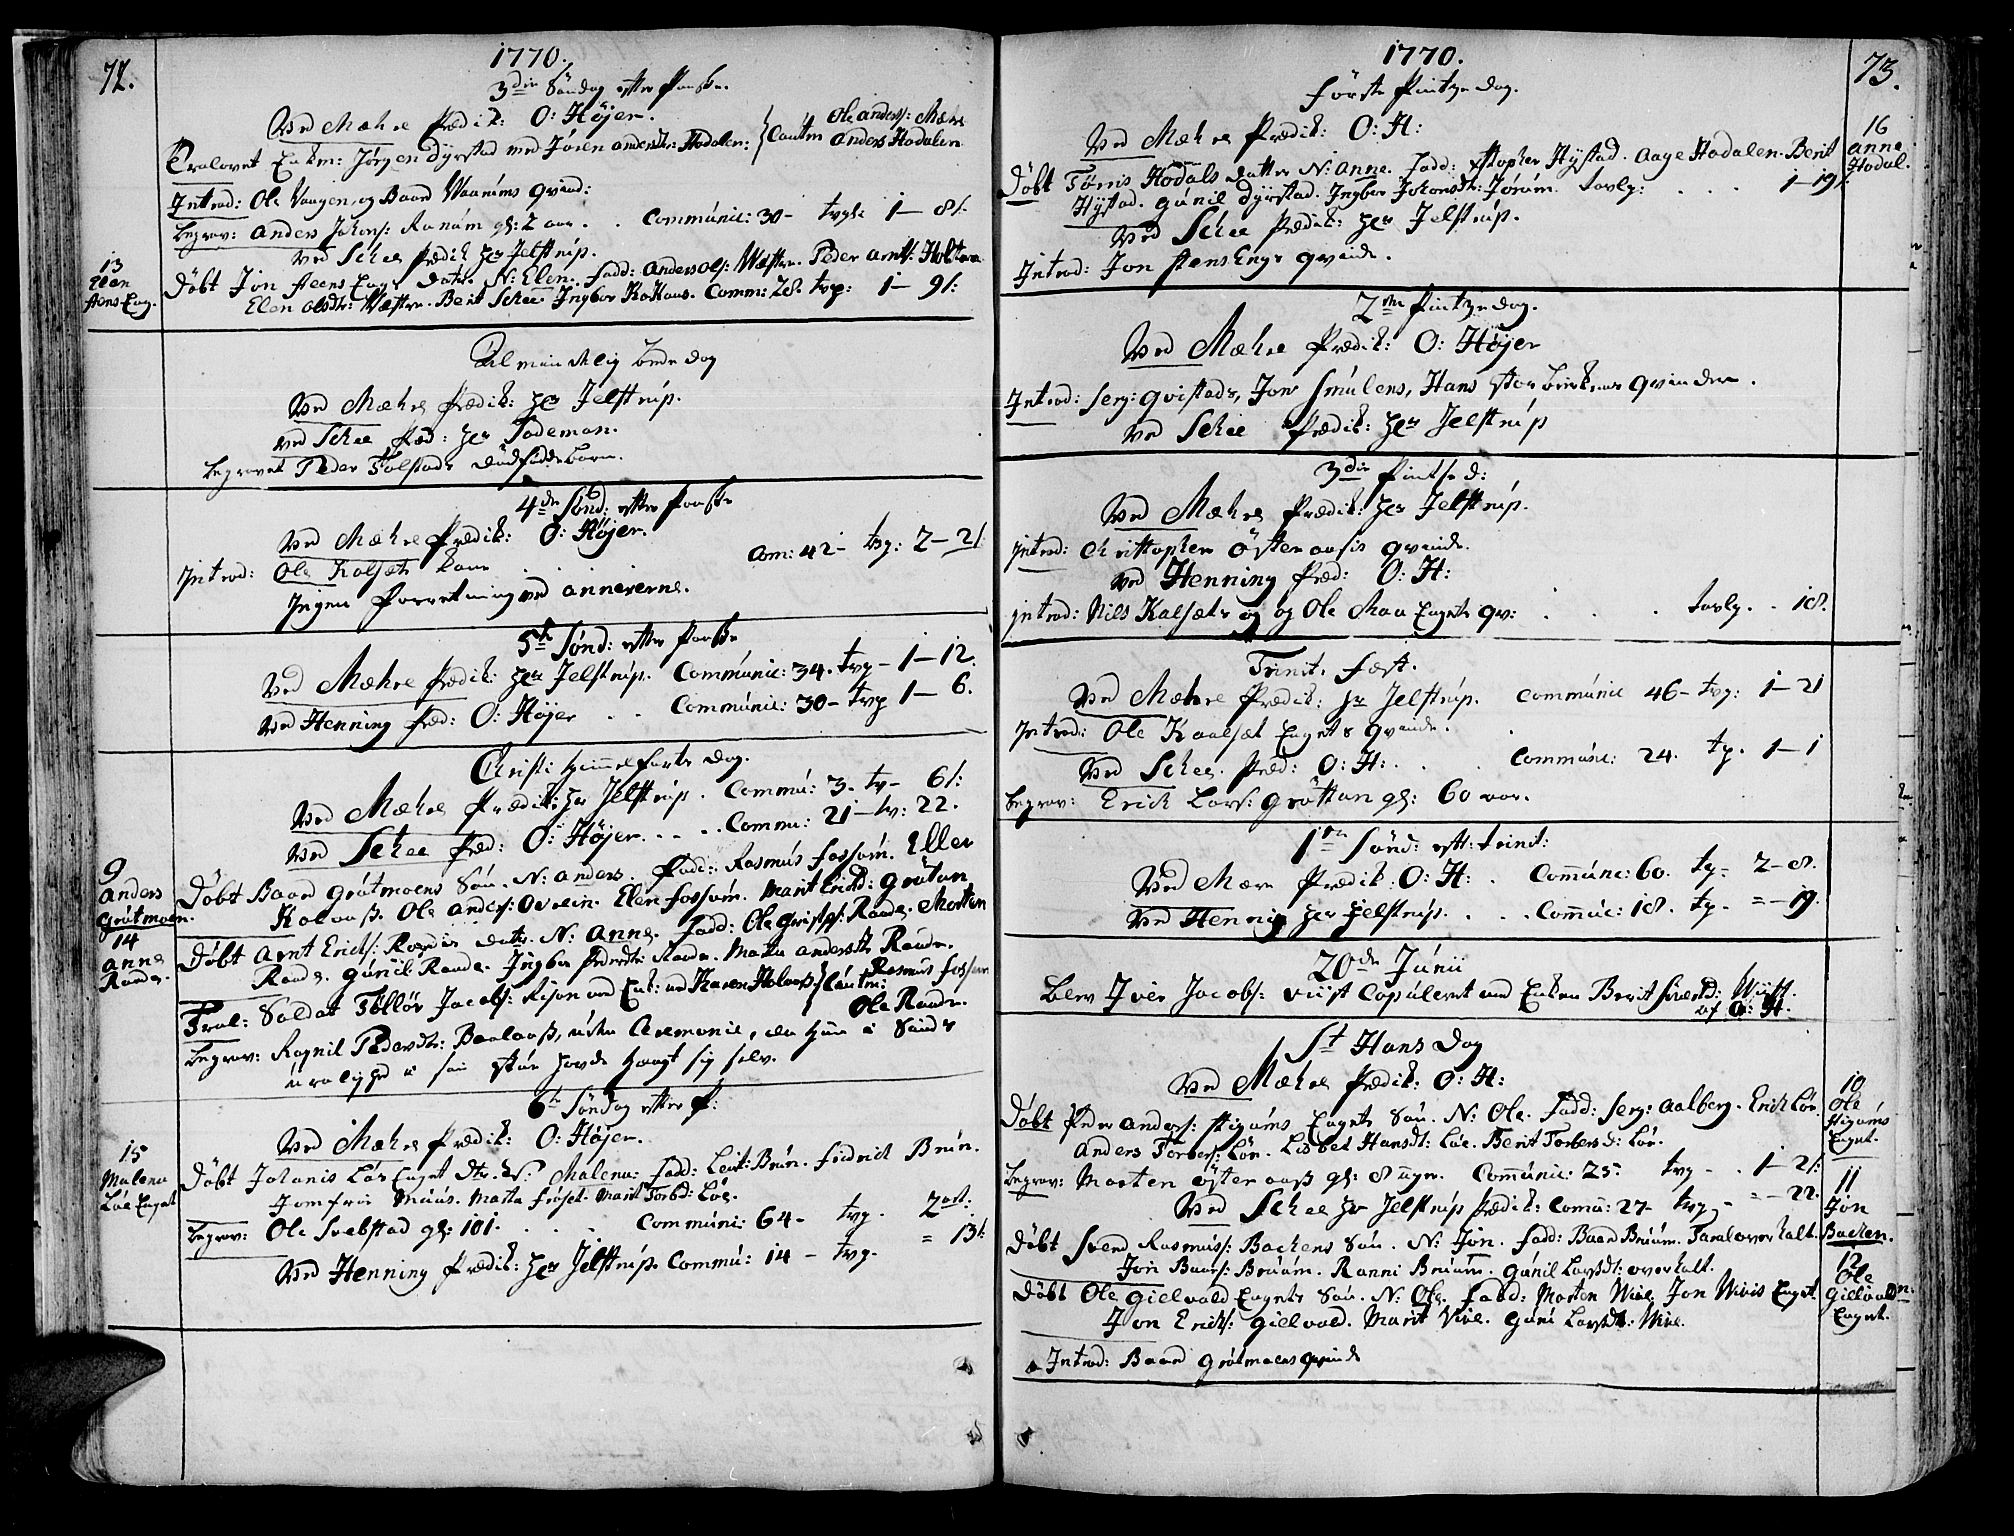 72.
1770.
3die Søndag efter Paaske.
Ved Mæhre Prædik: O: Höjer.
Trolovet Enkm: Jørgen Dyrstad med Jøren Andersdtr: Hodalen: Cautm Ole Anders: Mære
Anders Hodalen
Introd: Ole Vangen, og Baar Vaanums qvind:
Begrav: Anders Johans: Ranum gl: 2 aar. . Communic: 30 - tvgl: 1 - 8 s:
Ved Schee Prædik Hr Jelstrup.
13
Elen
Steens Eng.
Døbt Jon Steens Engs Dater N: Elen. Fadd: Anders Ols: Wæstre. Peder Arnts: Holtan
Elen Olsdtr: Wæstre. Berit Schee. Ingbor Comm: 28. tvg: 1 - 9 s:
Almindelig Bededag
Ved Mæhre Prædik: Hr Jelstrup.
Ved Schee Præd: Hr Tode man.
Begravet Peder Folstads dødfødde Barn.
4de Sønd: efter Paaske
Ved Mæhre Prædik: O: Höjer.
Introd: Ole Kalsæts kone Com: 42 - tvg: 2 - 21
Ingen Forretning ved annexerne.
5te Sønd: efter Paaske
Ved Mæhre Prædik: Hr Jelstrup. Communic: 34. tvg - 1 - 12.
Ved Henning Præd: O: Höjer . . Communic: 30 - tvg 1 - 6.
Christi Himmelfarts Dag.
Ved Mæhre Prædik: Hr Jelstrup. Commu: 3. tv - 6 s:
Ved Schee Præd: O: Höjer. . . . Commu: 21 - tv: 22.
9
Anders
Grøtmoen.
Døbt Baar Grøtmoens Søn. N: Anders. Fadd: Rasmus Fossum. Eller
Holaas. Ole Anders: Overein. Elen Fossum. Marit Ericsd: Grøtan
14
Anne
Rande.
Døbt Arnt Erics: Randes Dater. N: Anne. Fadd: Ole Rande. Morten
Rande. Gunil Rande. Ingbor Pedersdtr: Rande. Matha Andersdtr Rande.
Trol: Soldat Follør Jacobs: Enk: ved Karen Holaas Cautm: Rasmus Fossum
Ole Rande.
Begrav: Ragnil Pedersdtr: Baalaas, uden Ceremonie, da hun i Sinds
urolighed i sin stue havde hængt sig selv.
6te Søndag efter P:
Ved Mæhre Prædik: O: Höjer.
15
Malena
Løe Enget
Døbt Johanis Løe Enget Dtr. N: Malena: Fadd: Leut: Brun. Fridrich Brun.
Jomfrue Muus. Matha Frøset. Marit Torbd: Løe.
Begrav: Ole Svebstad gl: 101. . . . Communi: 64 - tvg. 2 ort:
Ved Henning Prædik: Hr Jelstrup. Commu: 14 - tvg. = 13 s:
73.
1770.
Første Pintzedag.
Ved Mæhre Prædik: O: H:
16
Anne
Hodal.
Døbt Tønnis Hodals Datter N: Anne. Fadd: Hystad. Aage Hodalen. Berit
Hystad. Gunil Dyrstad. Ingbor Johansdtr: Jørum. tavlg: . . . 1 - 19 s:
Ved Schee Prædik: Hr Jelstrup.
Introd: Jon Stens Engs qvinde.
2den Pintzedag.
Ved Mæhre Prædik: O: Höjer
Introd: Serg: Qvistads, Jon Smulens, Hans qvinder.
Ved Schee Prædik: Hr Jelstrup
3die Pintsed:
Ved Mæhre Prædik: Hr Jelstrup.
Introd: Christopher Østeraasis qvinde.
Ved Henning Præd: O: H:
Introd: Nils Kalsæts og og Ole Maa Engets qv: . . . tavlg. . 18.
Trinit. Fæst.
Ved Mæhre Prædik: Hr Jelstrup. Communic 46 - tvg: 1 - 21
Introd: Ole Kaalsæt Engets qvinde.
Ved Schee. Præd: O: H: . . . Communic: 24. tvg. 1 - 1
Begrav: Erick Lars: Grøttan gl: 60 aar.
1ste Sønd: eft: Trinit:
Ved Mære Prædik: O: H: . Communic: 60. tvg - 2 - 8.
Ved Henning Hr Jelstrup. . . . Communic: 18. tvg. = - 19.
20de Junii
Blev Iver Jacobs: Viist Copuleret med Enken Berit Sivertsd: Wiist.
af O: H.
St Hans Dag
Ved Mæhre Prædik: O: H:
10
Ole
Stigums
Enget.
Døbt Peder Anders: Stigums Engets Søn. N: Ole. Fadd: Serg: Aalberg. Erick Løe.
Anders Torbers: Løe. Lisbed Hansdt: Løe. Berit Torbersd: Løe.
Begrav: Morten Østeraas gl: 8 uger. Communic: 25. tvg - . 1 - 2 s:
Ved Schee Hr Jelstrup Prædik: Comu: 27 - tvg - = - 22.
11
Jon
Backen.
Døbt Svend Rasmus: Backens Søn. N: Jon. Fadd: Baar Bruum. Taraloverkalt.
Jon Baars: Bruum. Ranni Bruum. Gunil Larsdt: Overkalt.
12
Ole
Gielvold
Enget.
Døbt Ole Gielvold Engets Søn. N: Ole. Fadd: Morten Wive. Jon Wivis Enget.
Jon Ericks: Gielvold. Marit Vive. Guru Larsdtr: Wive.
Introd: Baard Grøtmoens qvinde